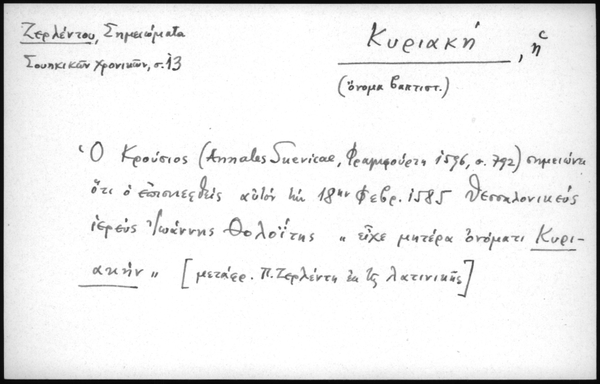 Ζερλέντου, Σημειώματα
Σουηκικῶν χρονικῶν, σ. 13
Κυριακή, ἡ
(ὄνομα βαπτιστ.)
Ὁ Κρούσιος (Annales Suevicae, Φραμφούρτη 1596, σ. 792) σημειώνει
ὅτι ὁ ἐπισκεφθεὶς αὐτὸν τὴν 18ην Φεβρ. 1585 Θεσσαλονικεύς
ἱερεύς Ἰωάννης Θολοΐτης „ εἶχε μητέρα ὀνόματι Κυρι-
ακήν „ [μετάφρ. Π. Ζερλέντη ἐκ τῆς λατινικῆς]